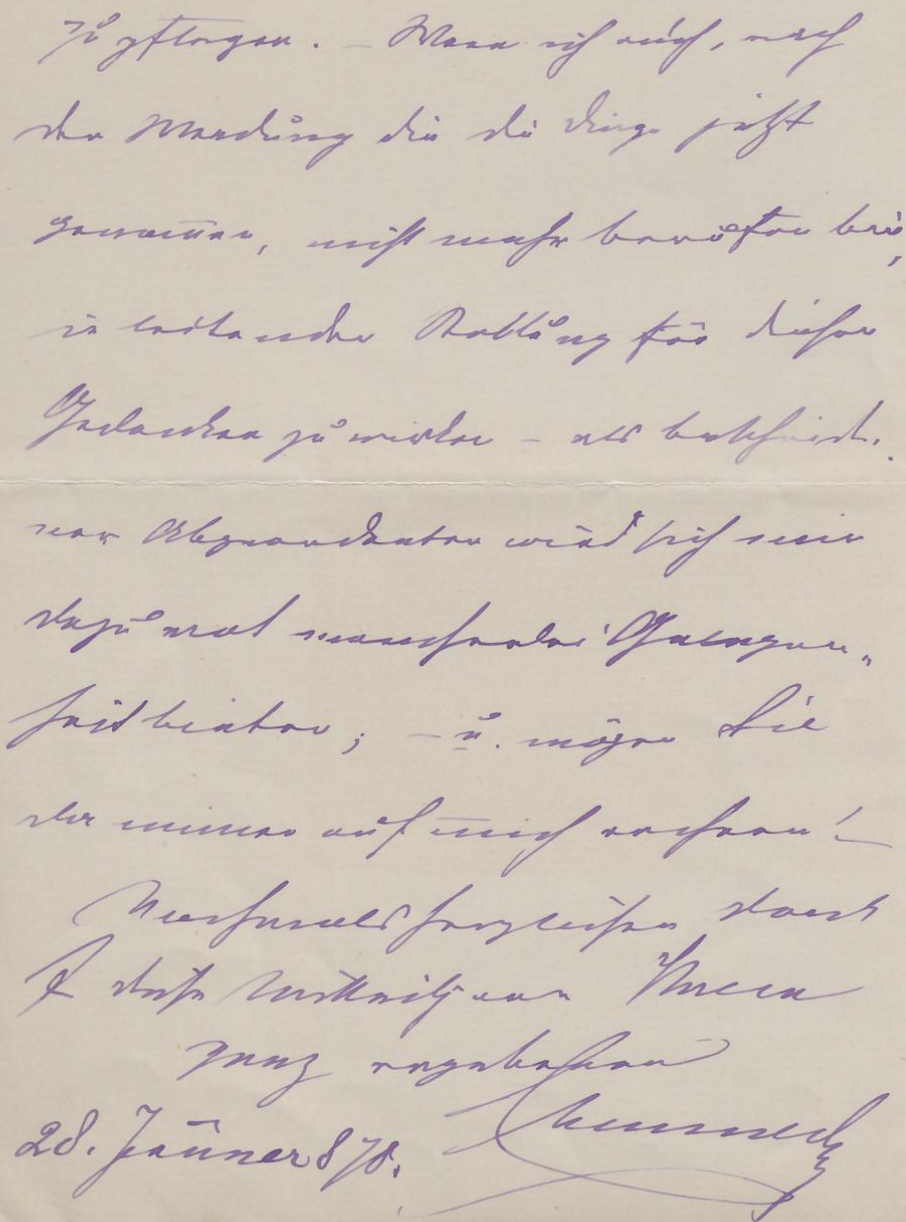 zu pflegen. – Wenn ich auch, nach
der Wendung die die Dinge jetzt
genom̅en, nicht mehr berufen bin,
in leitender Stellung für diesen
Gedanken zu wirken – als bescheide-
ner Abgeordneter wird sich mir
dazu wol mancherlei Gelegen-
heit bieten; – u. mögen Sie
da immer auf mich rechnen! –
Nochmals herzlichen Dank
f diese Mittheilgen von Ihrem
ganz ergebenen
28. Jänner 878.